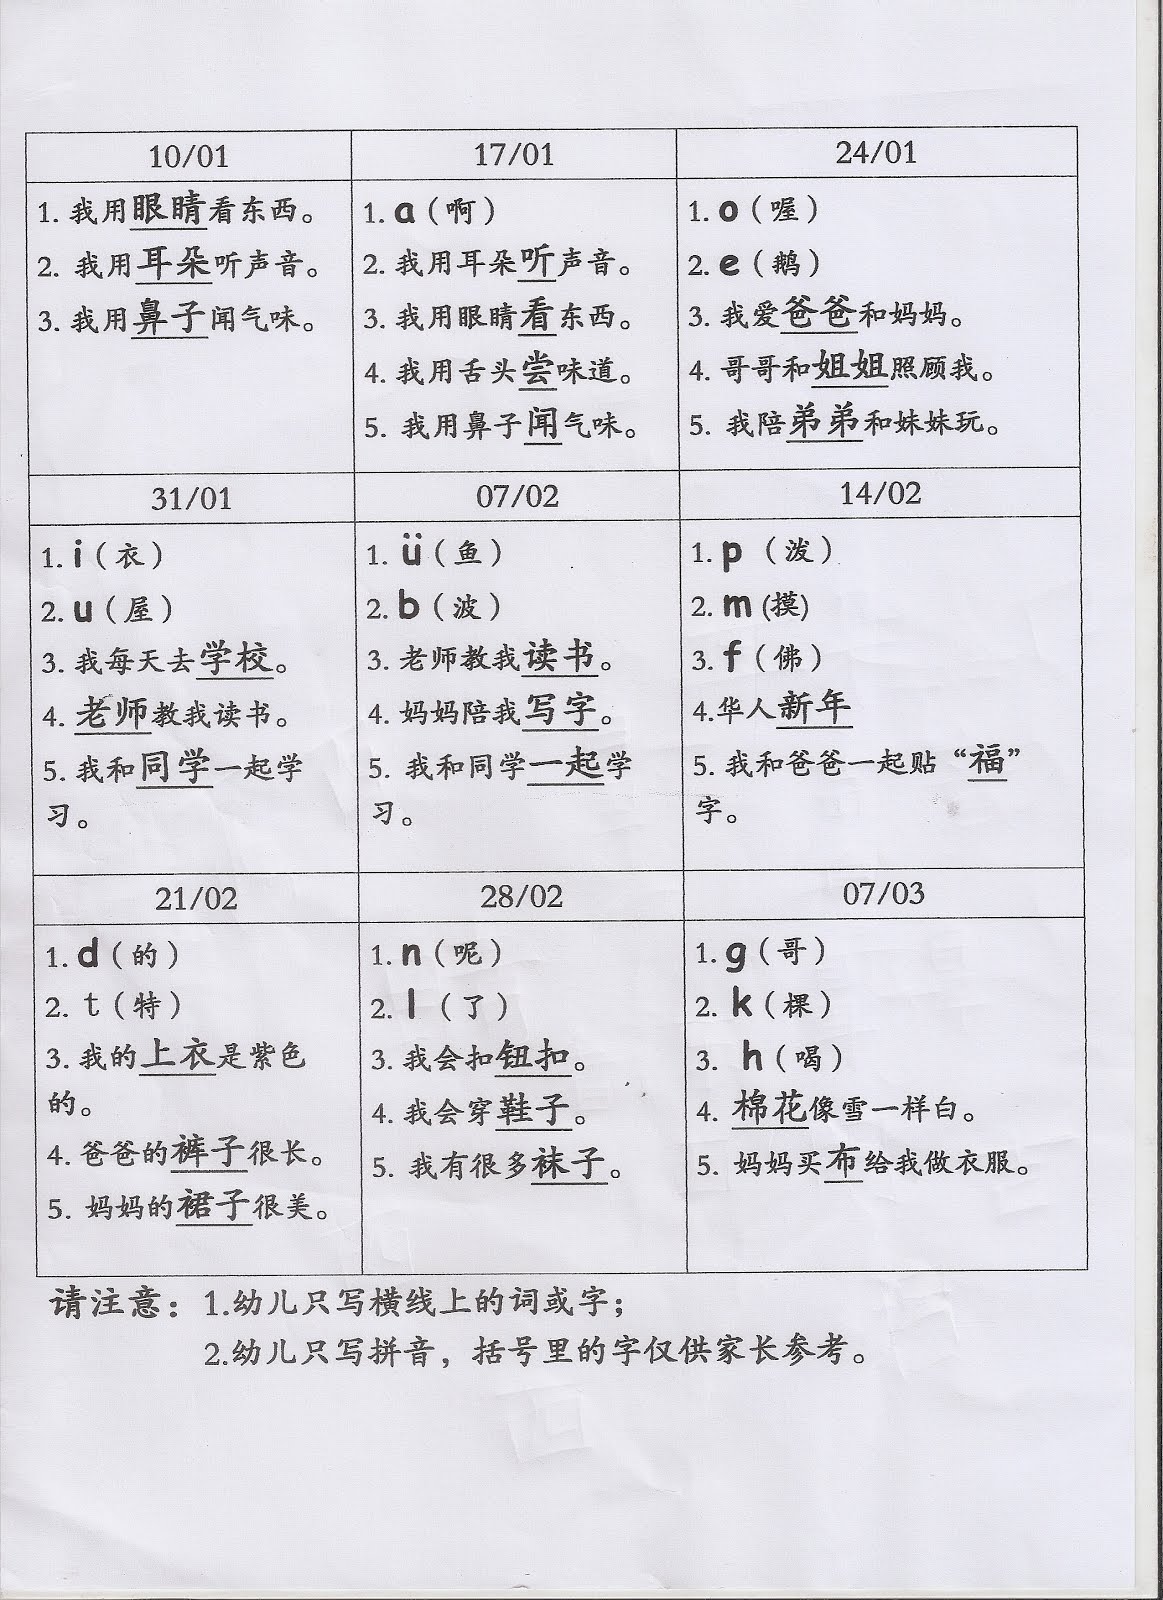 10/01
1. 我用眼睛看东西。
2. 我用耳朵听声音。
3. 我用鼻子闻气味。
17/01
1. a（啊）
2. 我用耳朵听声音。
3. 我用眼睛看东西。
4. 我用舌头尝味道。
5. 我用鼻子闻气味。
24/01
1. o（喔）
2. e（鹅）
3. 我爱爸爸和妈妈。
4. 哥哥和姐姐照顾我。
5. 我陪弟弟和妹妹玩。
31/01
1. i（衣）
2. u（屋）
3. 我每天去学校。
4. 老师教我读书。
5. 我和同学一起学
习。
07/02
1. ü（鱼）
2. b（波）
3. 老师教我读书。
4. 妈妈陪我写字。
5. 我和同学一起学
习。
14/02
1. p （泼）
2. m (摸)
3. f（佛）
4.华人新年
5. 我和爸爸一起贴“福”
字。
21/02
1. d（的）
2. t（特）
3. 我的上衣是紫色
的。
4. 爸爸的裤子很长。
5. 妈妈的裙子很美。
28/02
1. n（呢）
2. l （了）
3. 我会扣钮扣。
4. 我会穿鞋子。
5. 我有很多袜子。
07/03
1. g（哥）
2. k（棵）
3. h（喝）
4. 棉花像雪一样白。
5. 妈妈买布给我做衣服。
请注意：1.幼儿只写横线上的词或字；
2.幼儿只写拼音，括号里的字仅供家长参考。